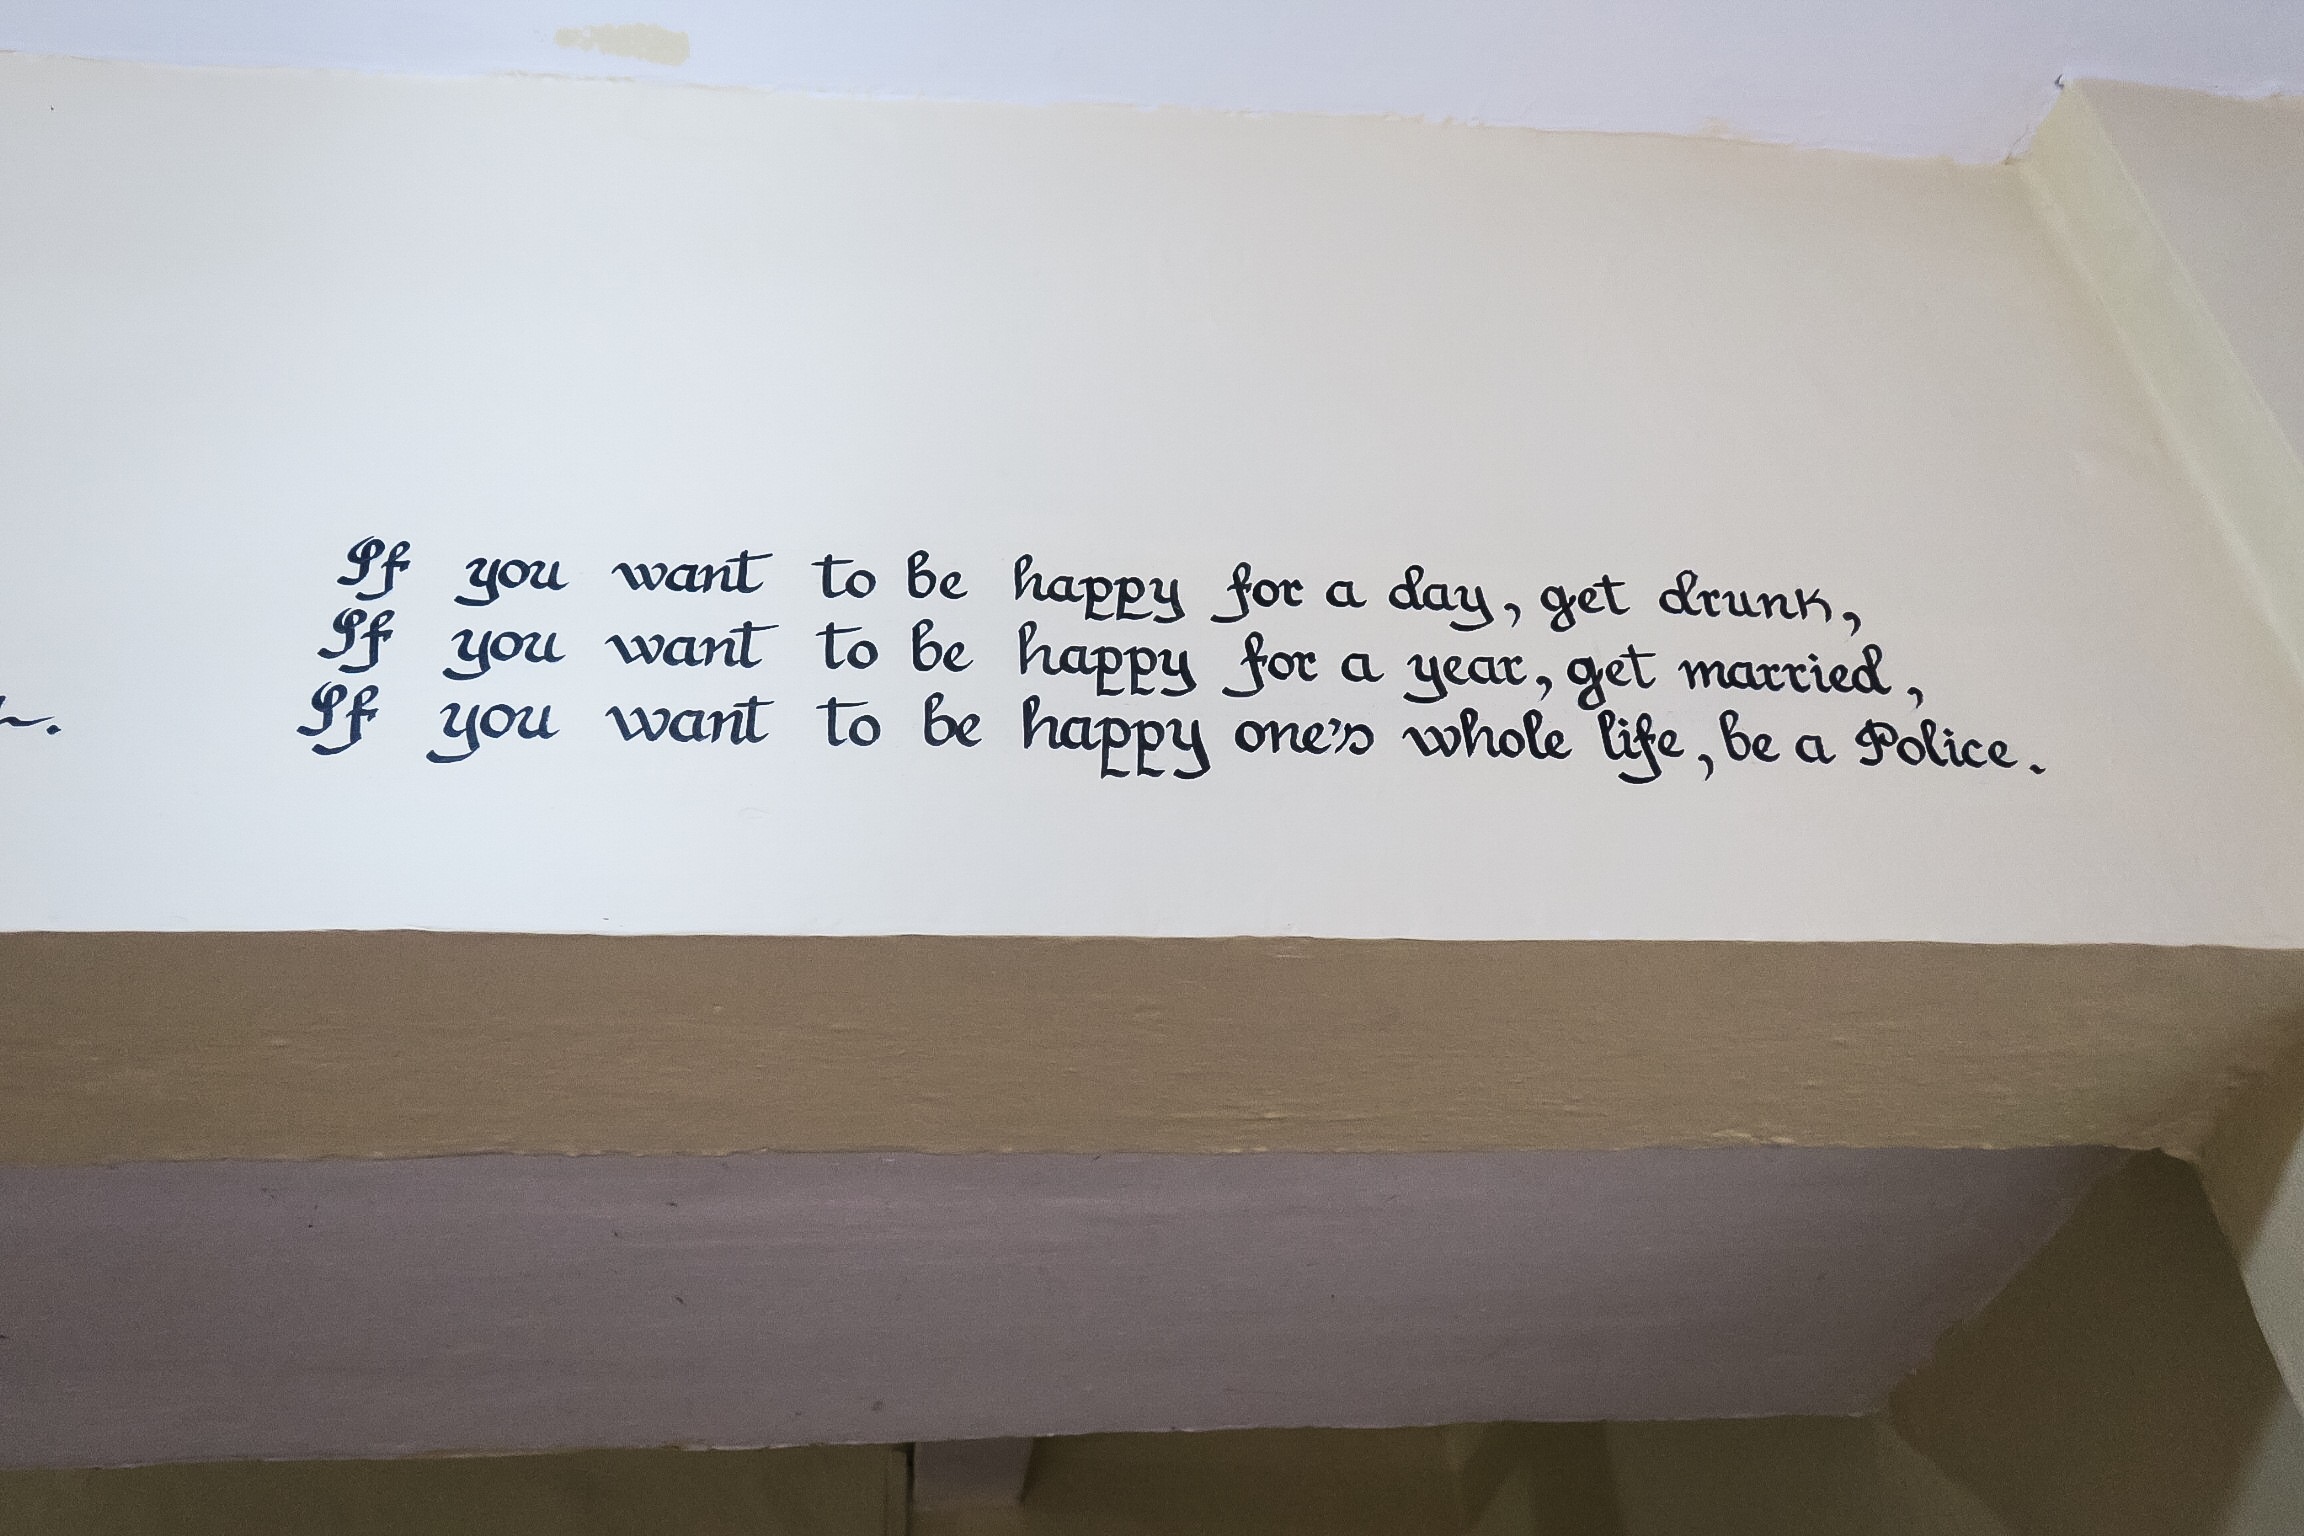 If you want to be happy for a day, get drunk,
If you want to be happy for a year, get married,
If you want to be happy one's whole life, be a Police.